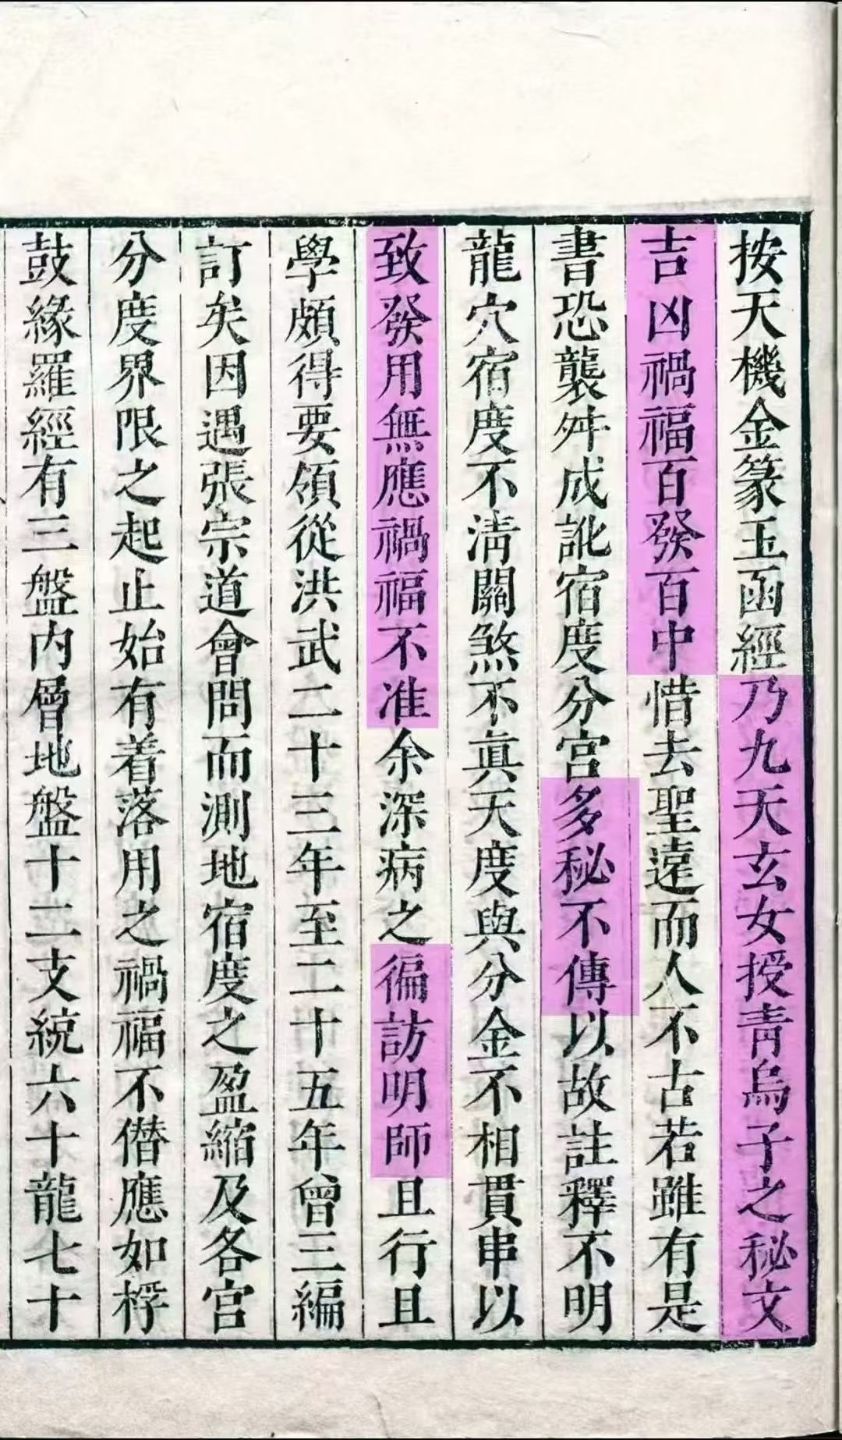 按天機金篆玉函經乃九天玄女授青烏子之秘文
吉凶禍福百發百中惜去聖遠而人不古若雖有是
書恐襲舛成訛宿度分宮多秘不傳以故註釋不明
龍穴宿度不清關煞不眞天度與分金不相貫串以
致發用無應禍福不准余深病之徧訪明師且行且
學頗得要領從洪武二十三年至二十五年曾三編
訂矣因遇張宗道會問而測地宿度之盈縮及各宮
分度界限之起止始有着落用之禍福不僭應如桴
鼓緣羅經有三盤內層地盤十二支統六十龍七十